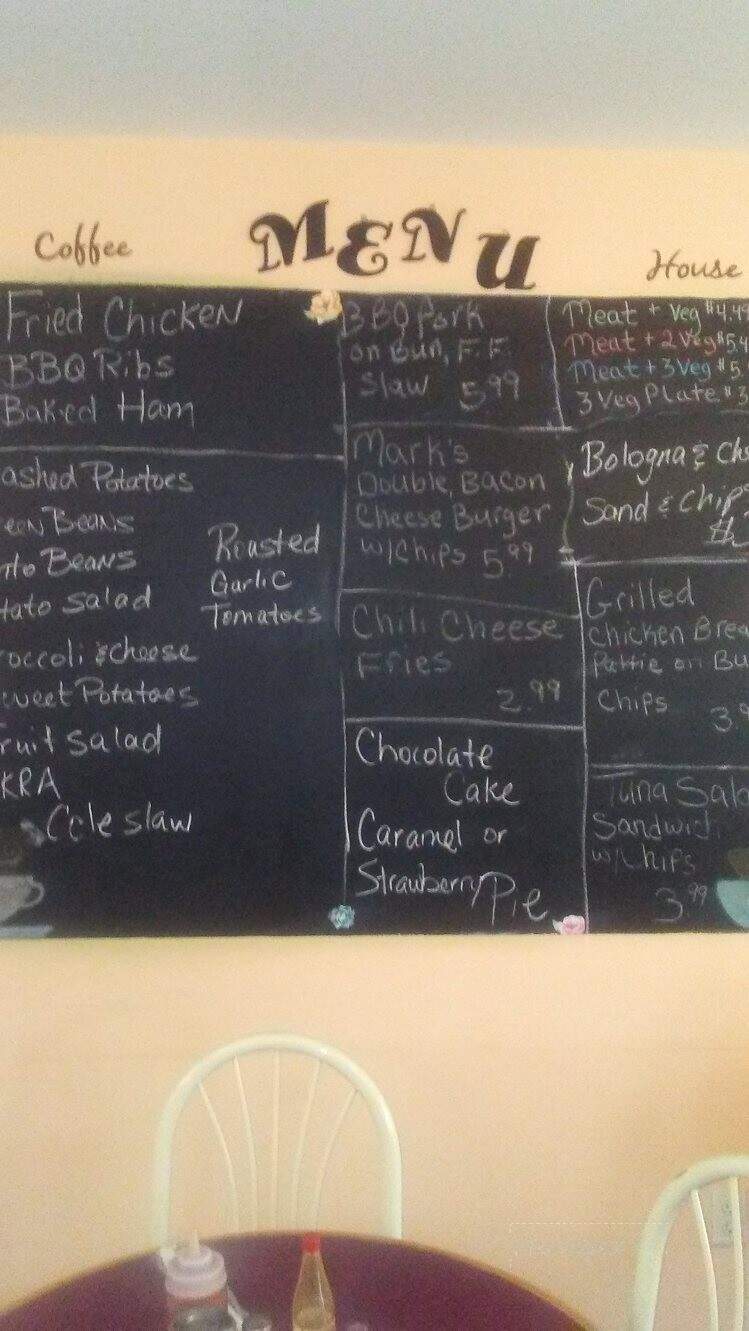 Coffee
MENU
House
Fried Chicken
BBQ Ribs
Baked Ham
ashed Potatoes
een Beans
nto Beans
tato Salad
roccoli & cheese
weet Potatoes
ruit Salad
KRA
Cole slaw
Roasted
Garlic
Tomatoes
BBQ Pork
on Bun, F.F.
Slaw 5.99
Mark's
Double, Bacon
Cheese Burger
w/Chips 5.99
Chili Cheese
Fries
2.99
Chocolate
Cake
Caramel or
Strawberry Pie
Meat + Veg $4.4
Meat + 2 Veg $5.4
Meat + 3 Veg $5.
3 Veg Plate $3
Bologna & Che
Sand & Chips
Grilled
Chicken Brea
Pattie on Bu
Chips
3.9
Tuna Sala
Sandwich
w/Chips
3.99